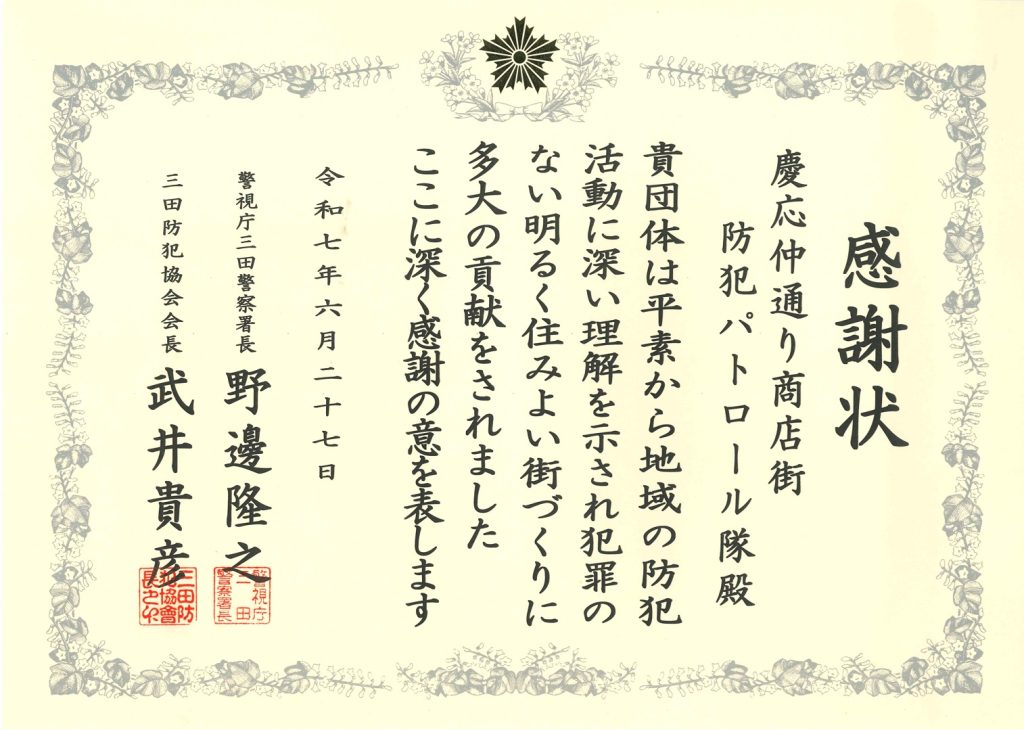 感謝状
慶応仲通り商店街
防犯パトロール隊殿
貴団体は平素から地域の防犯
活動に深い理解を示され犯罪の
ない明るく住みよい街づくりに
多大の貢献をされました
ここに深く感謝の意を表します
令和七年六月二十七日
警視庁三田警察署長
野邊隆之
警視庁
三田
警察署長
三田防犯協会会長
武井貴彦
三田防
犯協會
長之印